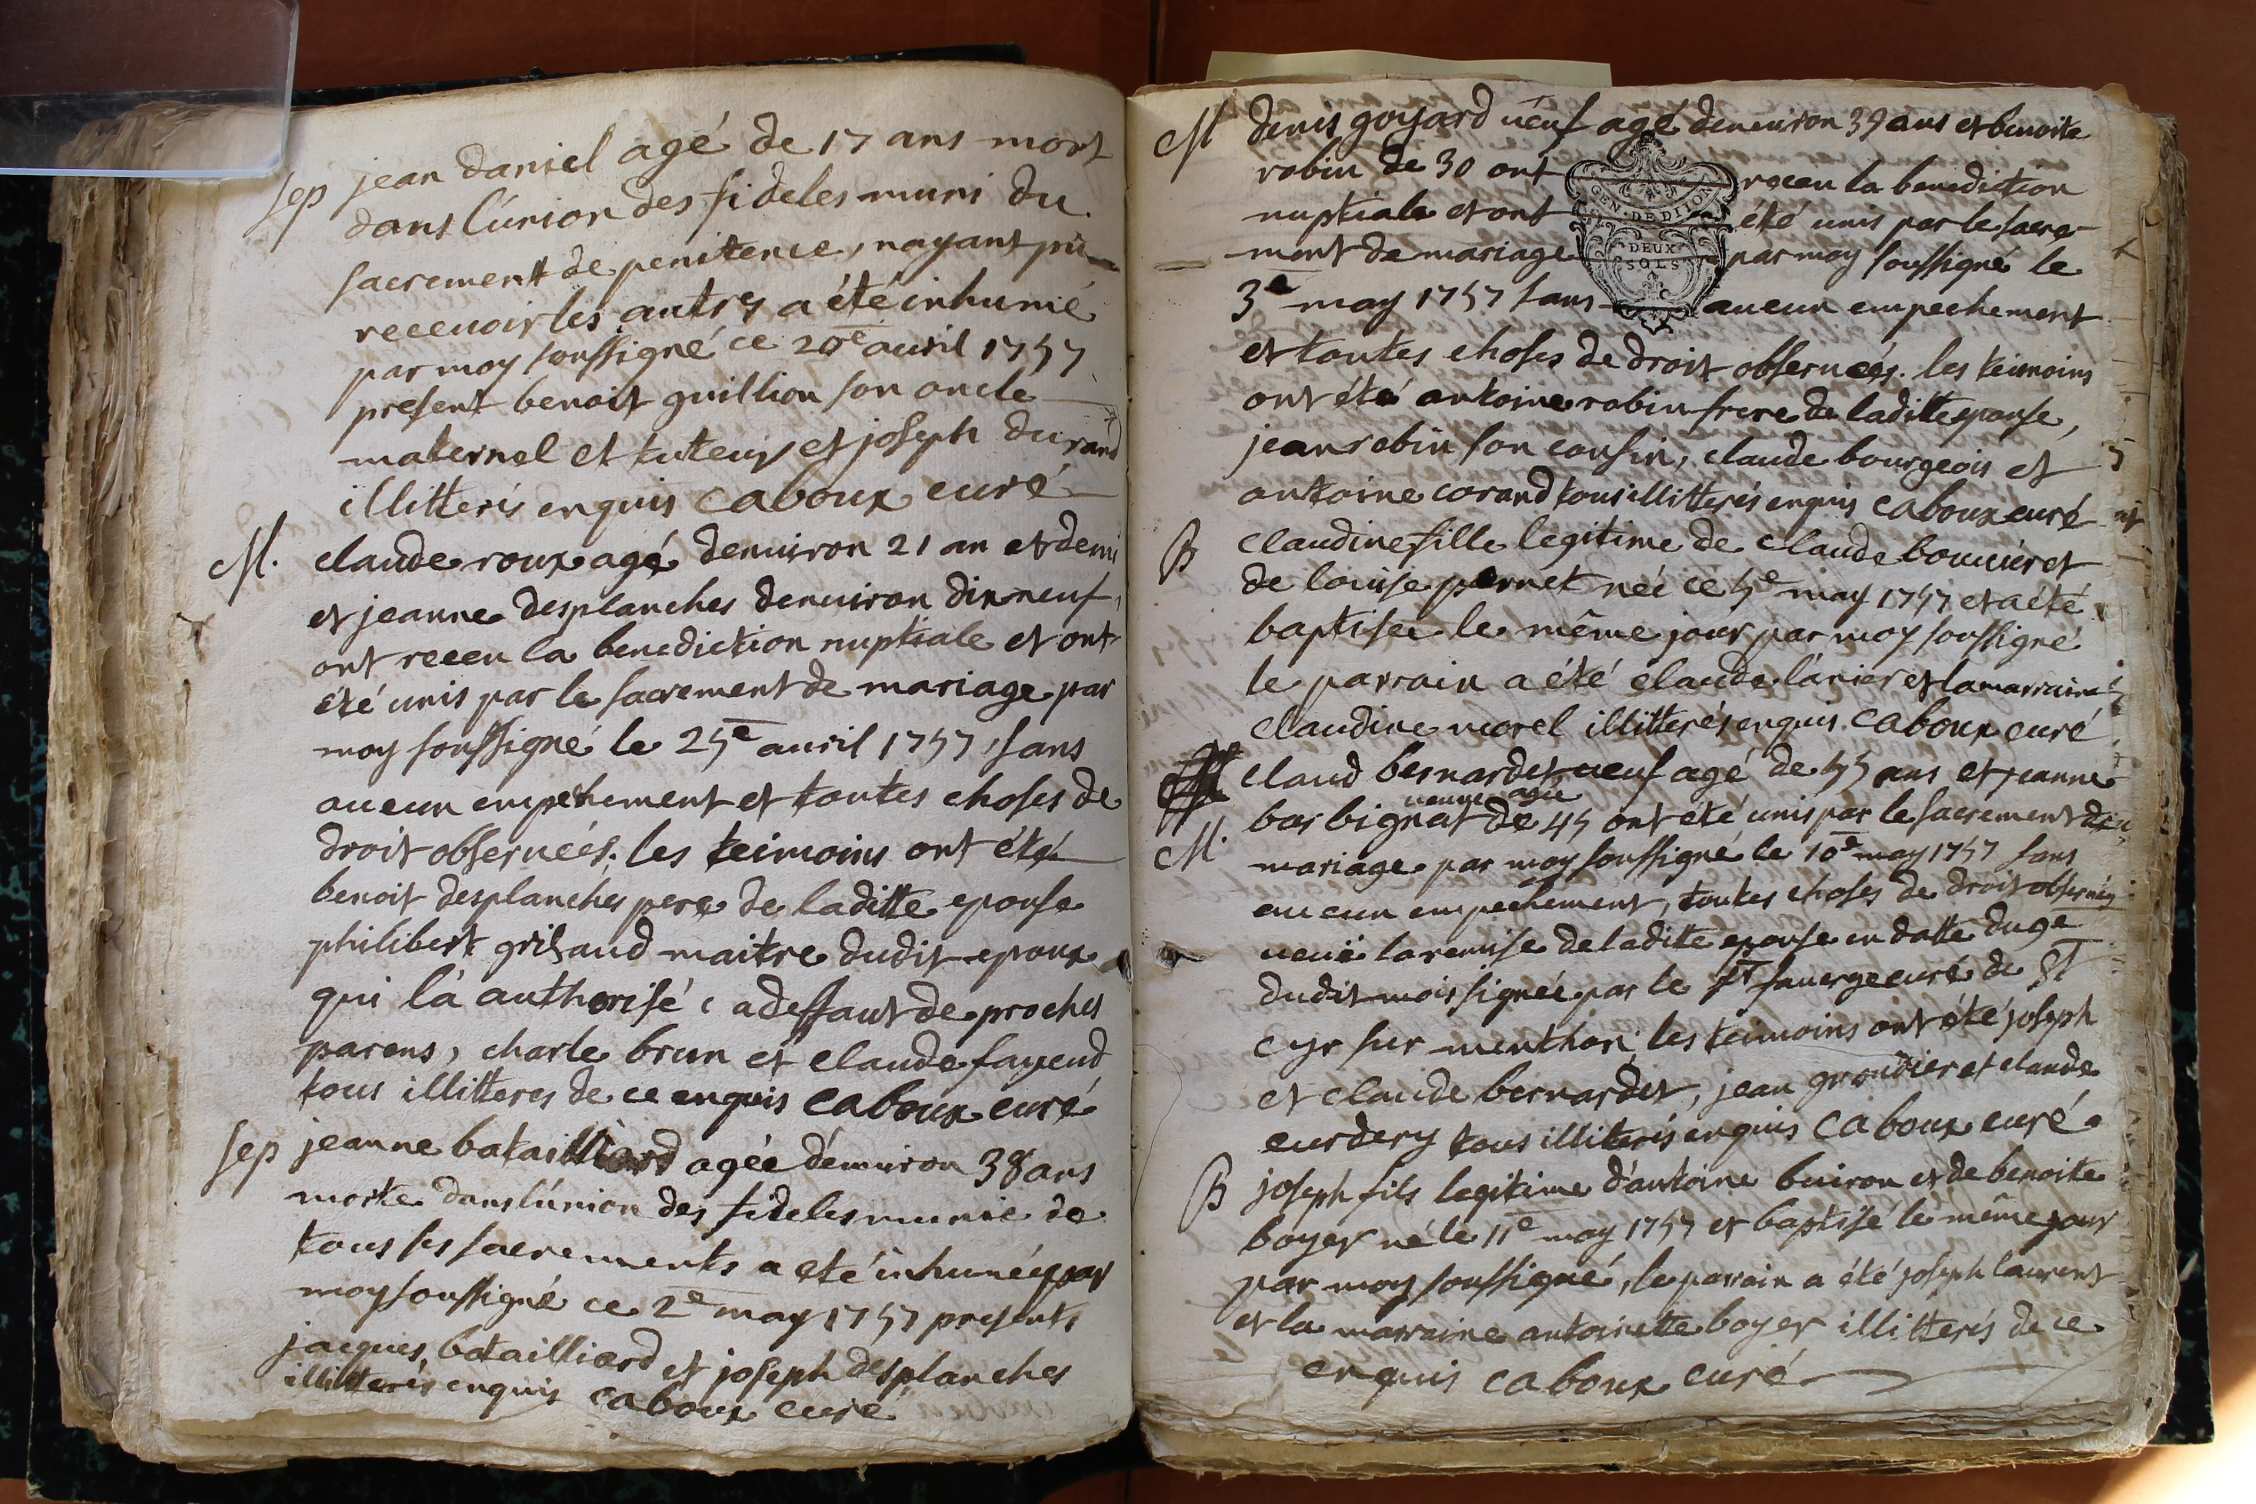 sep jean daniel agé de 17 ans mort
dans l'union des fideles muni du
sacrement de penitence, nayant pu
recevoir les autres a été inhumé
par moy soussigné ce 20e avril 1757
present benoit guillion son oncle
maternel et tuteur et joseph durand
illitterés enquis caboux curé
M. claude roux agé denviron 21 an et demi
et jeanne desplanches denviron dixneuf,
ont receu la benediction nuptiale et ont
été unis par le sacrement de mariage par
moy soussigné le 25e avril 1757, sans
aucun empechement et toutes choses de
droit observeés. les teimoins ont été
benoit desplanches pere de laditte epouse
philibert grisaud maitre dudit epoux
qui l'a authorisé, a deffaut de proches
parens, charle brun et claude fayend
tous illitteres de ce enquis caboux curé
sep jeanne batailliard agée d'environ 38 ans
morte dans l'union des fideles munie de
tous ses sacrements a eté inhumée par
moy soussigné ce 2e may 1757 presents
jacques batailliard et joseph desplanches
illitterés enquis caboux curé
M denis goyard veuf agé denviron 39 ans et benoite
robin de 30 ont receu la benediction
nuptiale et ont été unis par le sacre
ment de mariage par moy soussigné le
3e may 1757 sans aucun empechement
GEN. DE DIJON
DEUX
SOLS
et toutes choses de droit observeés. les teimoins
ont été antoine robin frere de laditte epouse,
jean robin son cousin, claude bourgeois et
antoine corand tous illitterés enquis caboux curé
B claudine fille legitime de claude bouvier et
de louise pernet née ce 5e may 1757 et a été
baptisée le même jour par moy soussigné
le parrain a été claude lánier et la marraine
claudine morel illitterés enquis caboux curé
claud bernardet veuf agé de 55 ans et jeanne
veuve agée
barbignat de 45 ont été unis par le sacrement de
M. mariage par moy soussigné le 10e may 1757 sans
aucun empechement, toutes choses de droit observeés
veuë la remise de ladite epouse en datte du 9e
dudit mois signeé par le sr favergecuré de St
cyr sur menthon les teimoins ont été joseph
et claude bernardet, jean grondier et claude
curdery tous illiterés enquis caboux curé.
B joseph fils legitime d'antoine buiron et de benoite
boyer né le 11e may 1757 et baptisé le même jour
par moy soussigné, le parrain a été joseph laurent
et la marraine antoinette boyer illitterés de ce
enquis caboux curé